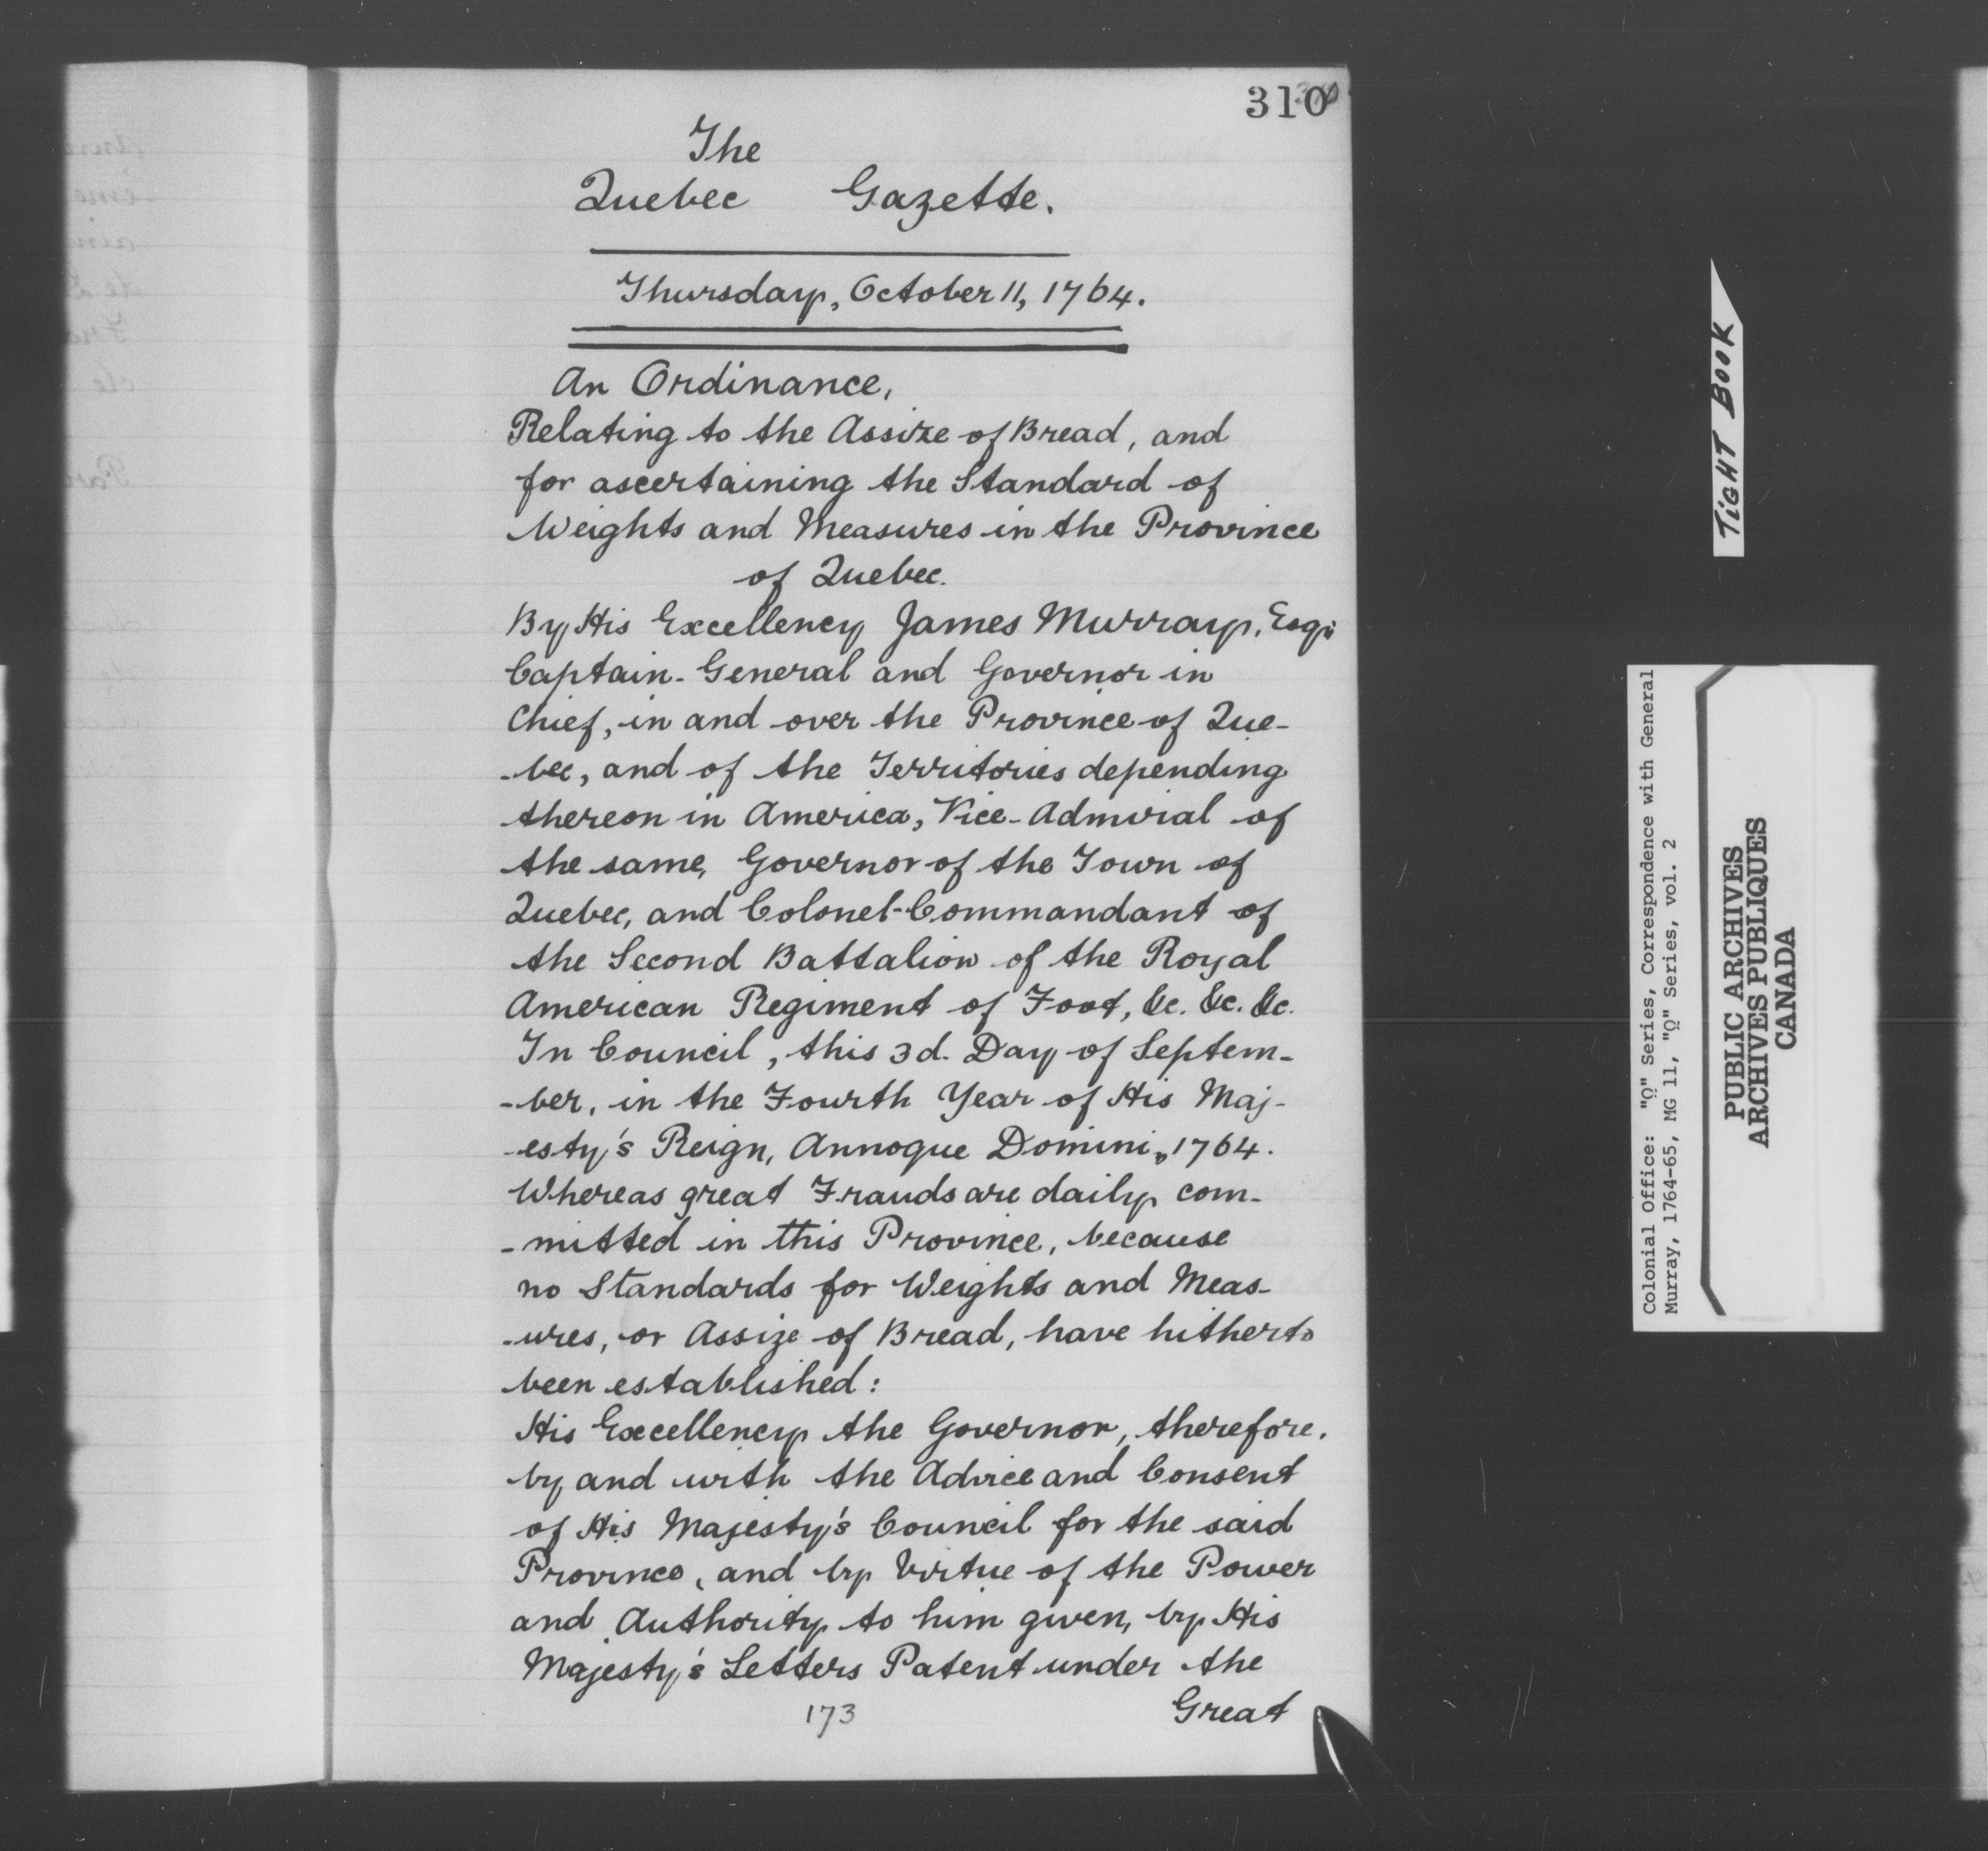 310
The
Quebec Gazette.
Thursday, October 11, 1764.
An Ordinance,
Relating to the Assize of Bread, and
for ascertaining the Standard of
Weights and Measures in the Province
of Quebec.
By His Excellency James Murray, Esqr
Captain-General and Governor in
Chief, in and over the Province of Que-
-bec, and of the Territories depending
thereon in America, Vice-Admiral of
the same, Governor of the Town of
Quebec, and Colonel-Commandant of
the Second Battalion of the Royal
American Regiment of Foot, &c. &c. &c.
In Council, this 3d. Day of Septem-
-ber, in the Fourth Year of His Maj-
-esty's Reign, Annoque Domini, 1764.
Whereas great Frauds are daily com-
-mitted in this Province, because
no Standards for Weights and Meas-
-ures, or Assize of Bread, have hitherto
been established:
His Excellency the Governor, therefore,
by and with the Advice and Consent
of His Majesty's Council for the said
Province, and by Virtue of the Power
and Authority to him given, by His
Majesty's Letters Patent under the
173 Great
TIGHT BOOK
Colonial Office: "Q" Series, Correspondence with General
Murray, 1764-65, MG 11, "Q" Series, vol. 2
PUBLIC ARCHIVES
ARCHIVES PUBLIQUES
CANADA